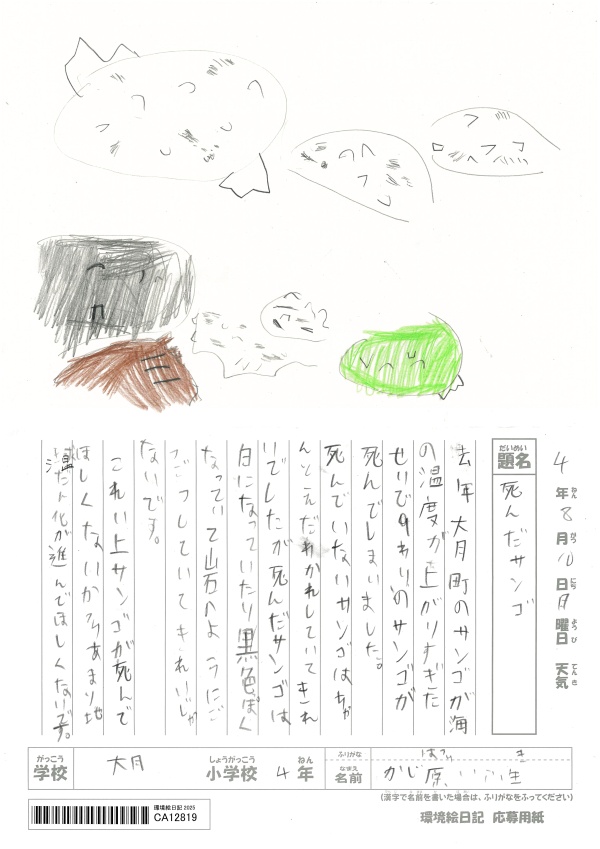 4年8月10日月曜日 天気
題名 死んだサンゴ
去年大月町のサンゴが海
の温度が上がりすぎた
せいで9わりのサンゴが
死んでしまいました。
死んでいないサンゴはちゃ
んとえだわかれしていてきれ
いでしたが死んだサンゴは
白になっていたり黒色っぽく
なっていて岩のようにご
つごつしていてきれいじゃ
ないです。
これい上サンゴが死んで
ほしくないからあまり地
温だん化が進んでほしくないです。
学校 大月 小学校 4年
ふりがな
名前 かじ原
(漢字で名前を書いた場合は、ふりがなをふってください)
環境絵日記 2025
CA12819
環境絵日記 応募用紙